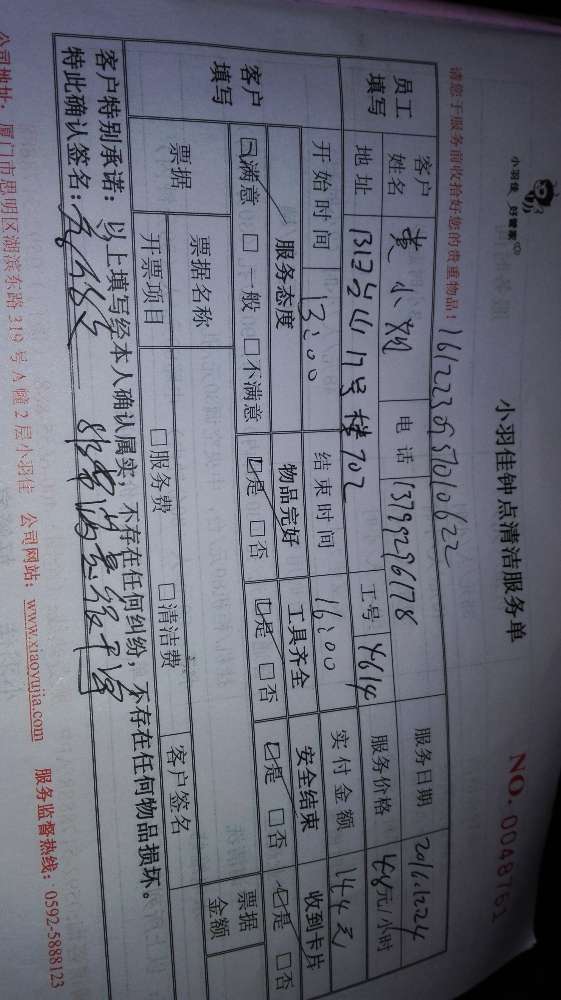 小羽佳 好管家
小羽佳钟点清洁服务单
NO. 0048761
请您于服务前收拾好您的贵重物品！
员工填写
客户姓名 黄小姐 电话 服务日期 2016.12.24
地址 工号 4614 服务价格 48元/小时
开始时间 13:00 结束时间 16:00 实付金额 144元
客户填写
服务态度 物品完好 工具齐全 安全结束 收到卡片
☑满意 □一般 □不满意 ☑是 □否 ☑是 □否 ☑是 □否 ☑是 □否
票据 票据名称 客户签名 票据金额
开票项目 □服务费 □清洁费
客户特别承诺：以上填写经本人确认属实，不存在任何纠纷，不存在任何物品损坏。
特此确认签名：
公司地址：厦门市思明区湖滨东路319号A幢2层小羽佳 公司网站：www.xiaoyujia.com 服务监督热线：0592-5888123